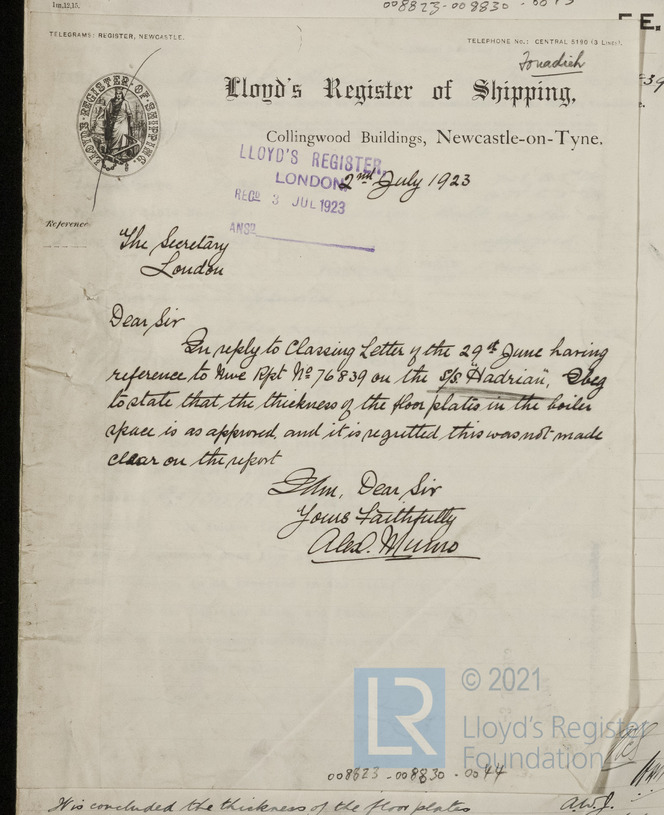 1m,12,15.
008823-008830-0043
TELEGRAMS: REGISTER, NEWCASTLE.
TELEPHONE No.: CENTRAL 5190 (3 Lines).
LLOYD'S REGISTER OF SHIPPING
Lloyd's Register of Shipping,
Collingwood Buildings, Newcastle-on-Tyne.
LLOYD'S REGISTER,
LONDON
RECD 3 JUL 1923
ANSD
2nd July 1923
Reference
The Secretary
London
Dear Sir
In reply to Classing Letter of the 29th June having
reference to Nwe Rpt No 76839 on the S/S "Hadrian", I beg
to state that the thickness of the floor plates in the boiler
space is as approved, and it is regretted this was not made
clear on the report
I am, Dear Sir
Yours Faithfully
Alex. Munro
LR
© 2021
Lloyd's Register
Foundation
008823-008830-0044
It is concluded the thickness of the floor plates
A.W.J.